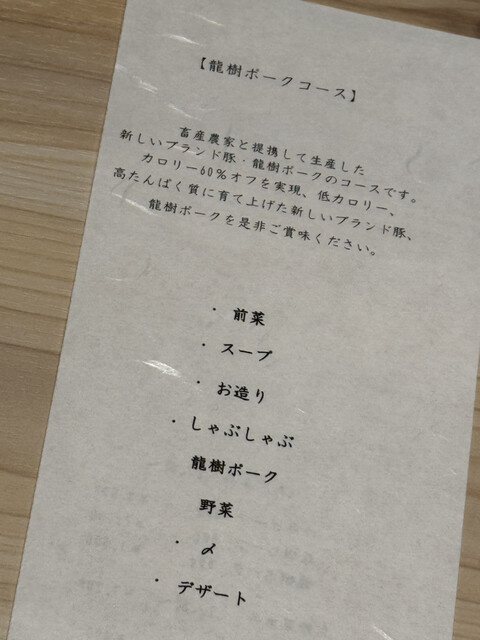 【龍樹ポークコース】
畜産農家と提携して生産した
新しいブランド豚・龍樹ポークのコースです。
カロリー60%オフを実現、低カロリー、
高たんぱく質に育て上げた新しいブランド豚、
龍樹ポークを是非ご賞味ください。
・前菜
・スープ
・お造り
・しゃぶしゃぶ
龍樹ポーク
野菜
・〆
・デザート